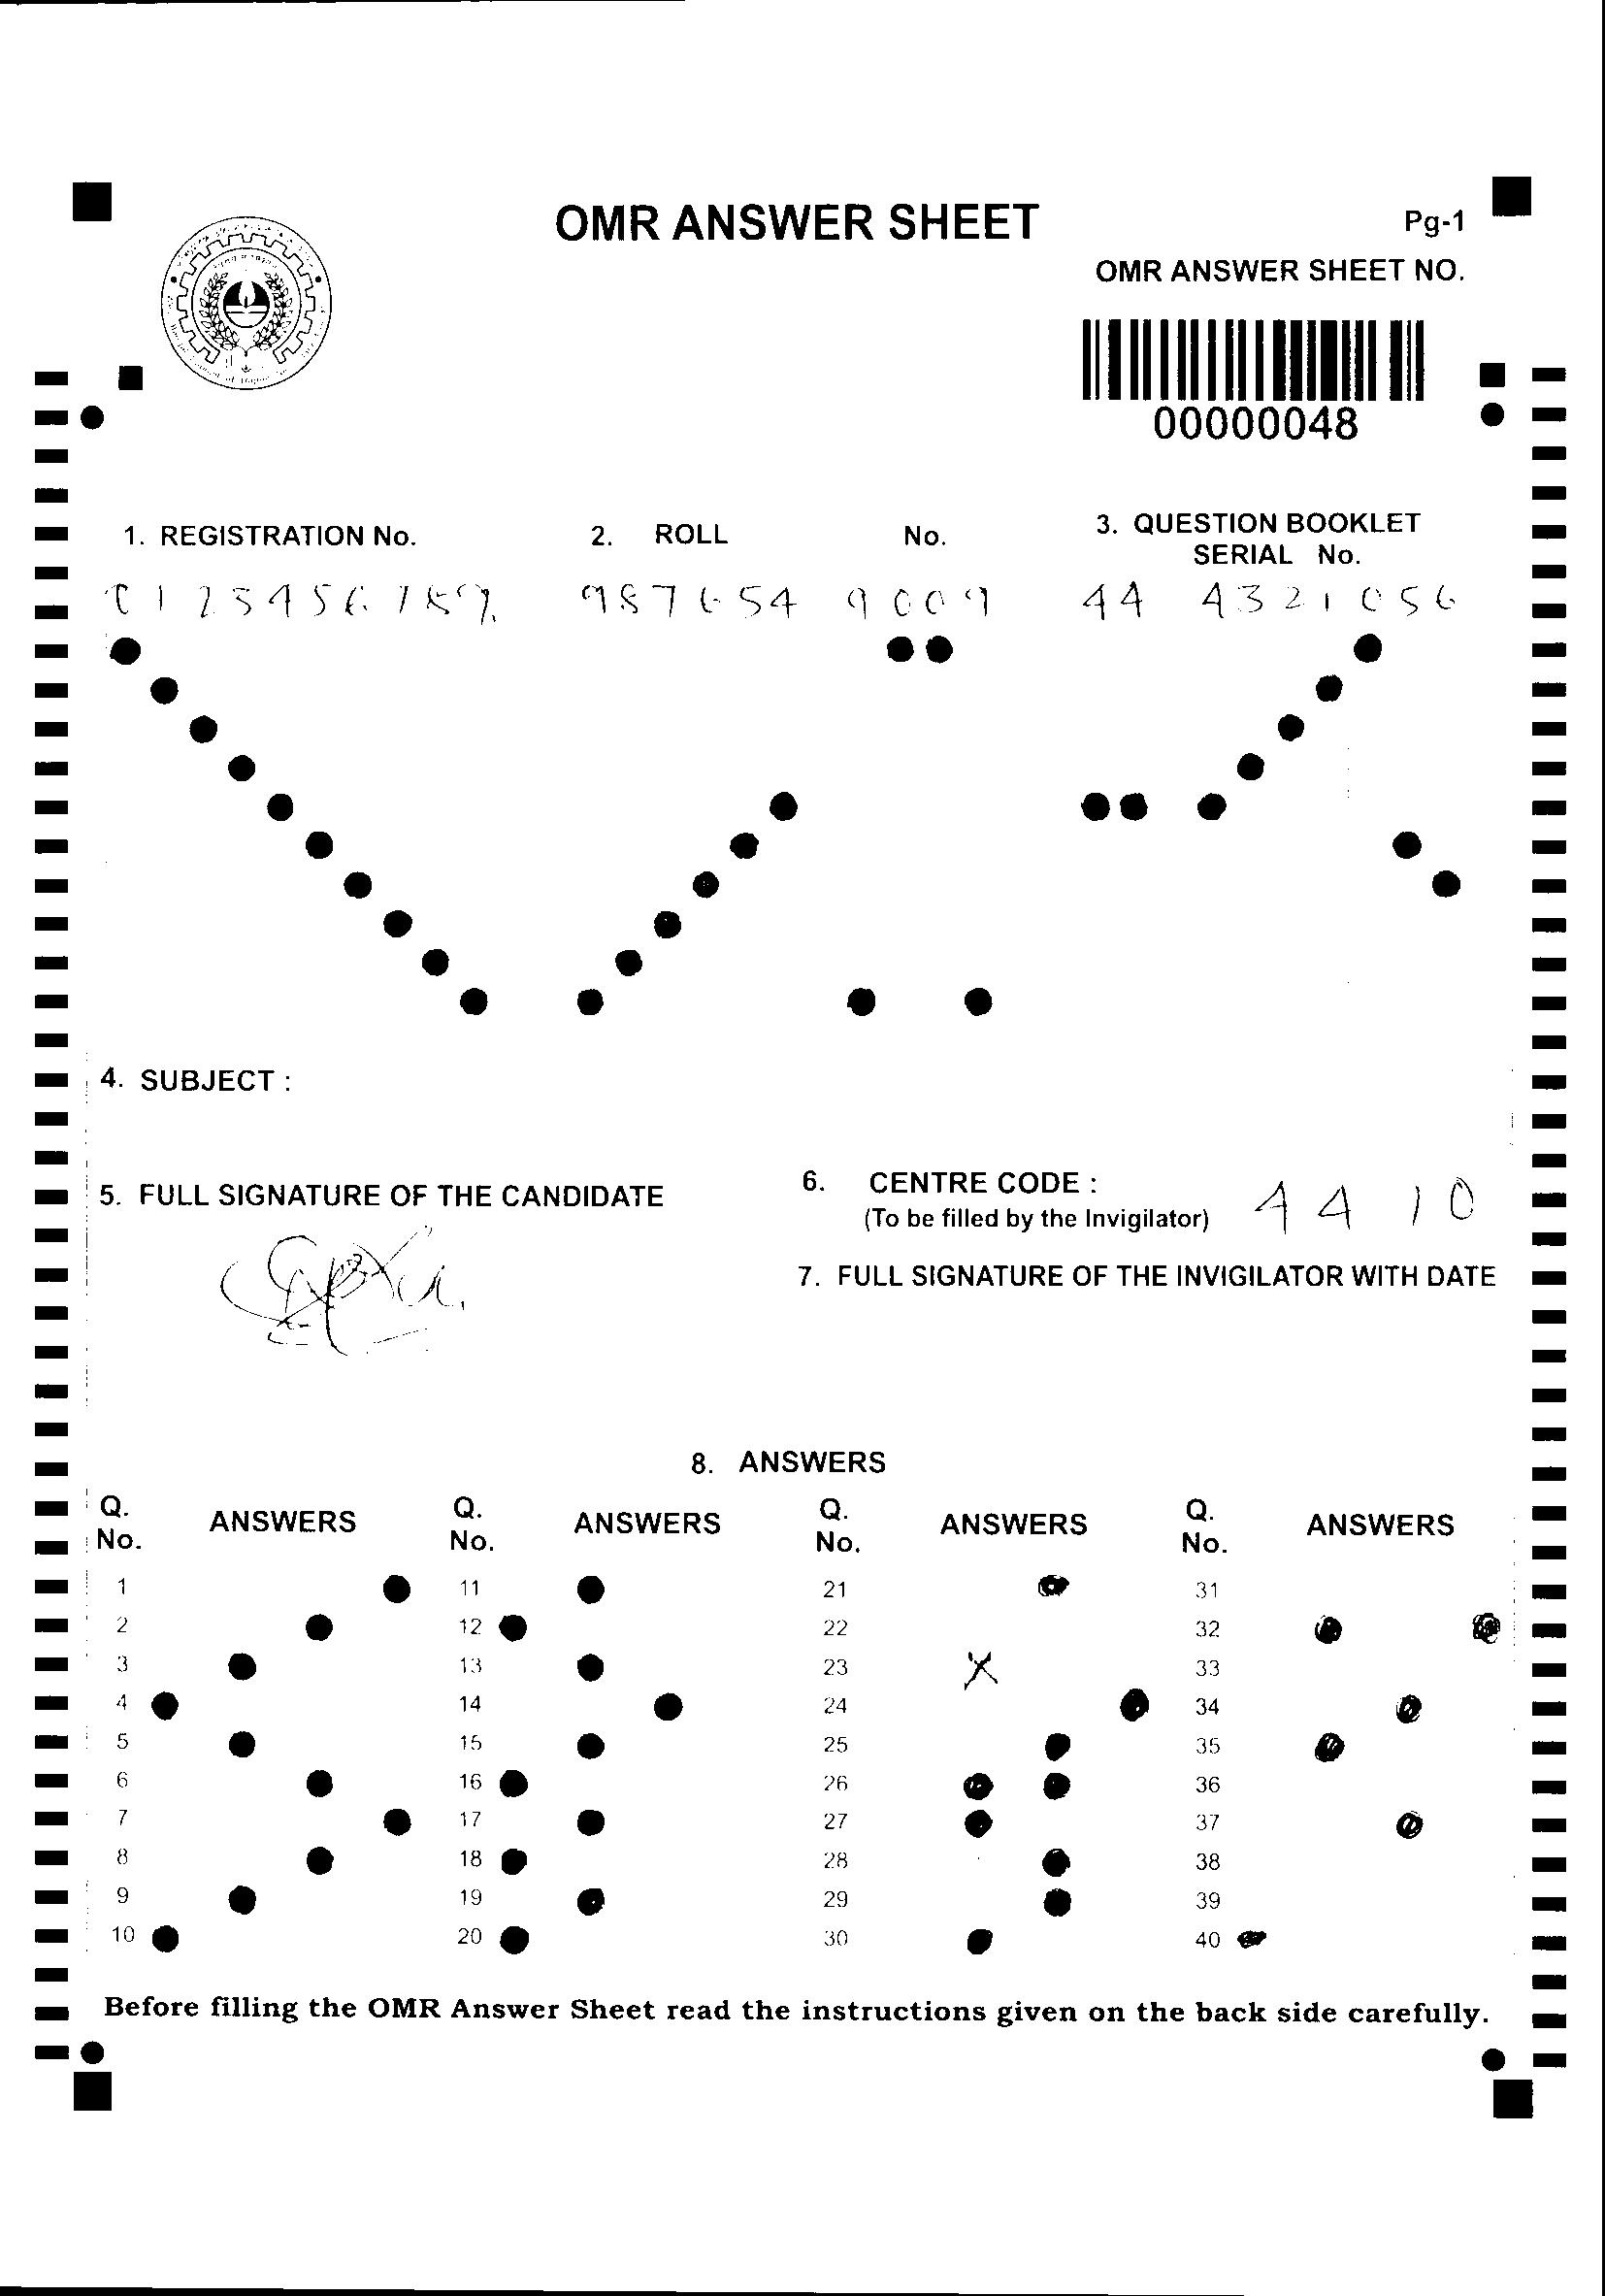 OMR ANSWER SHEET
Pg-1
OMR ANSWER SHEET NO.
00000048
1. REGISTRATION No.
2. ROLL No.
3. QUESTION BOOKLET
SERIAL No.
0123456789 987654 9009 44 4321056
4. SUBJECT :
5. FULL SIGNATURE OF THE CANDIDATE
6. CENTRE CODE : 44 10
(To be filled by the Invigilator)
7. FULL SIGNATURE OF THE INVIGILATOR WITH DATE
8. ANSWERS
Q. No. ANSWERS Q. No. ANSWERS Q. No. ANSWERS Q. No. ANSWERS
1 11 21 31
2 12 22 32
3 13 23 33
4 14 24 34
5 15 25 35
6 16 26 36
7 17 27 37
8 18 28 38
9 19 29 39
10 20 30 40
Before filling the OMR Answer Sheet read the instructions given on the back side carefully.